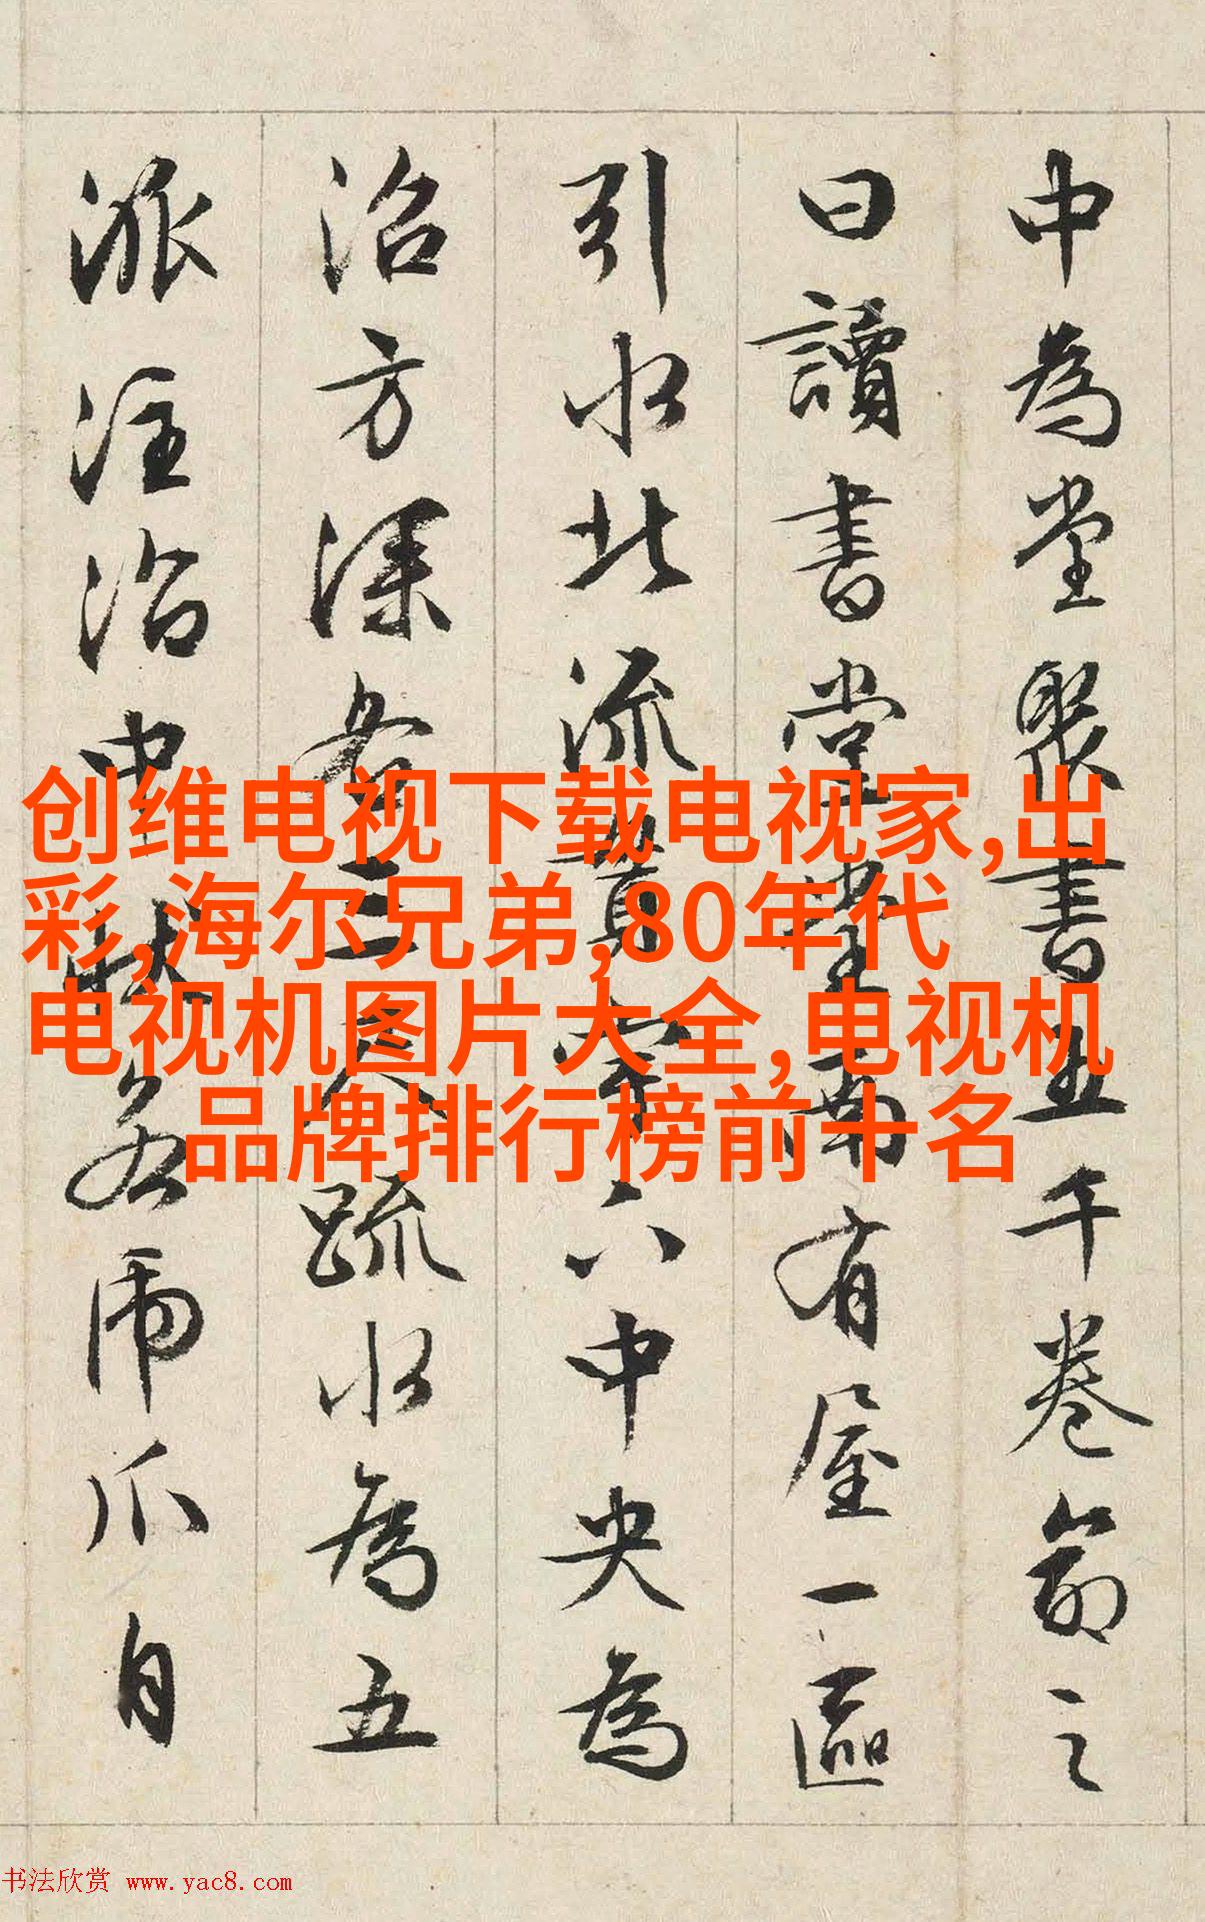 中為堂聚書五千卷命之
曰讀書堂堂南有屋一區
引水北流貫宇下中央為
沼方深各三尺疏水為五
派注沼中狀若虎爪自
创维电视下载电视家,出
彩,海尔兄弟,80年代
电视机图片大全,电视机
品牌排行榜前十名
书法欣赏 www.yac8.com